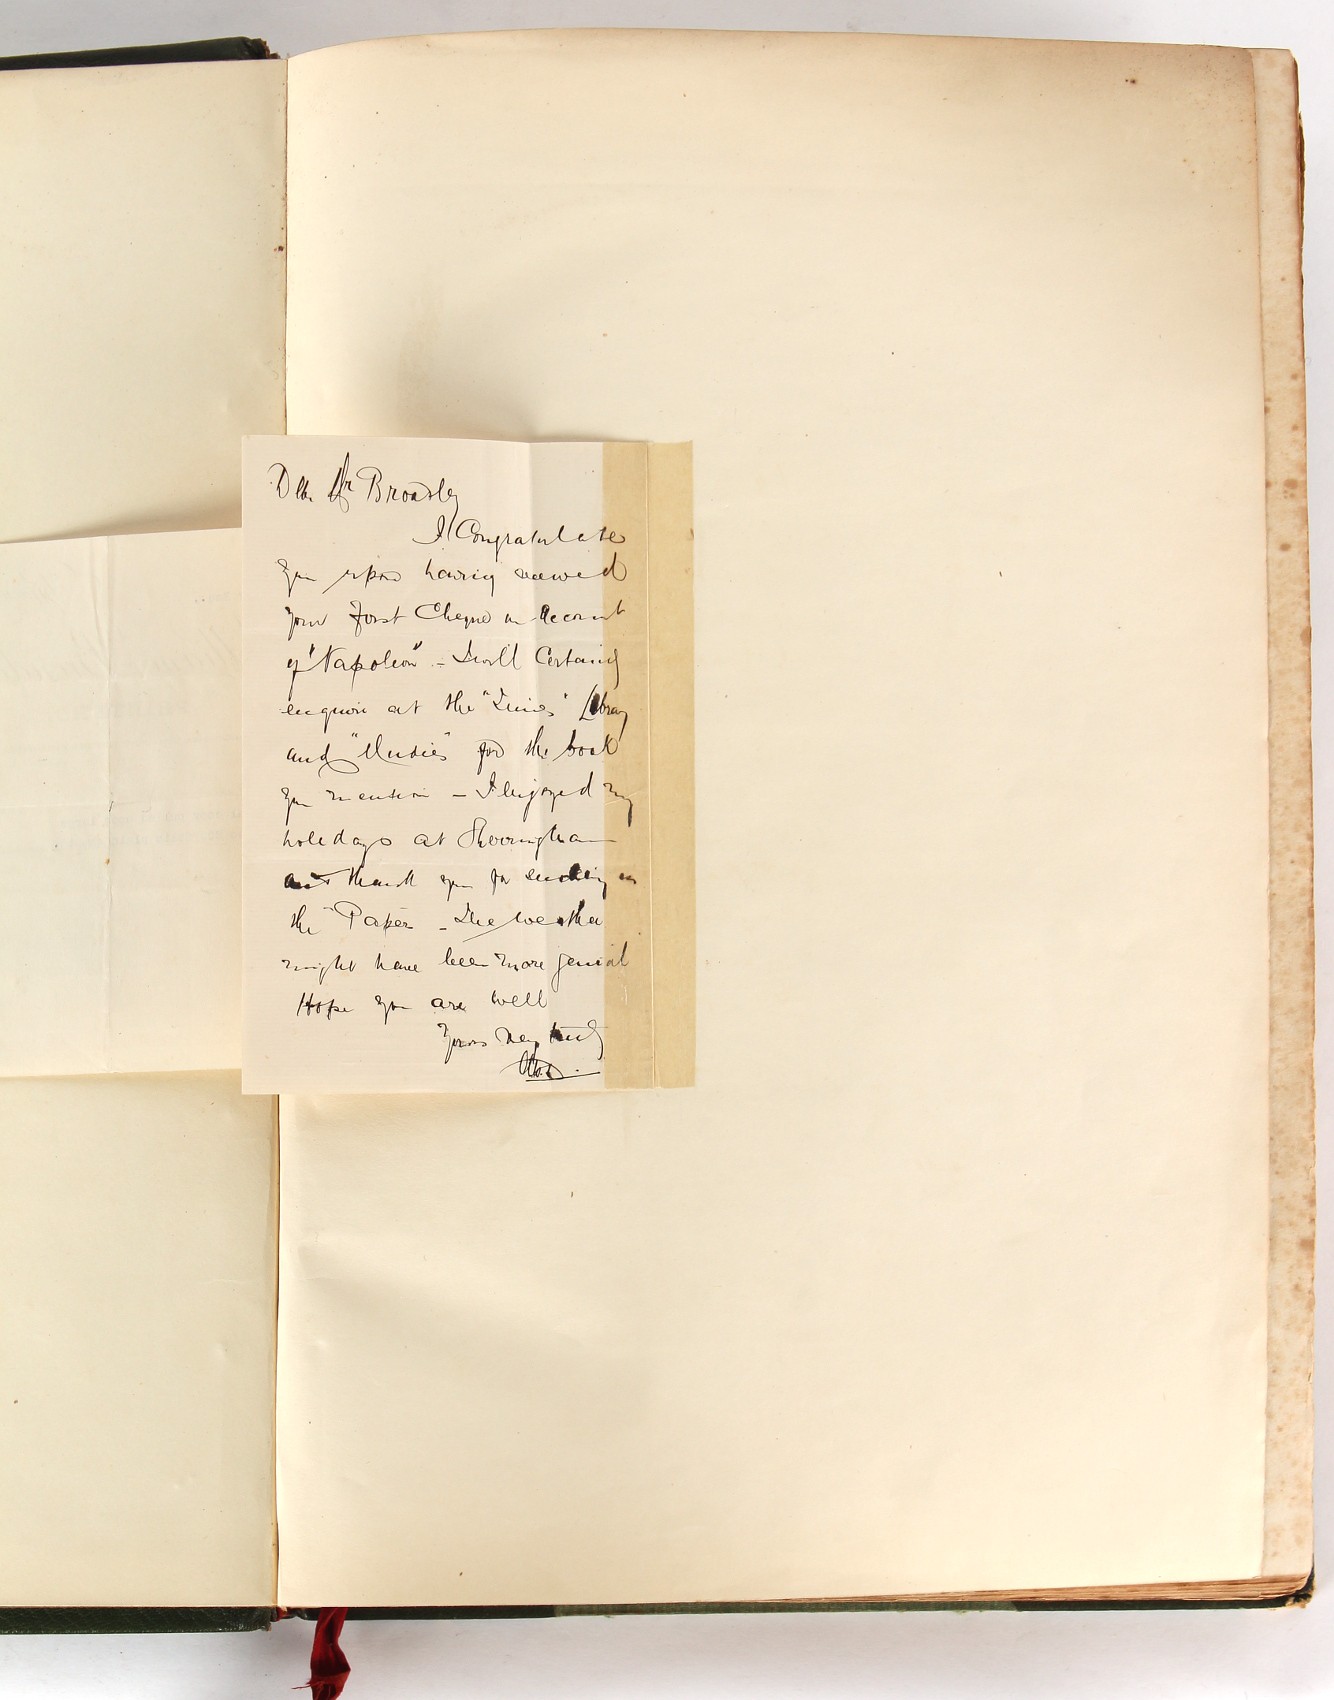 Dear Mr Broadley
I Congratulate
you upon having received
your First Cheque on Account
of "Napoleon" - I will Certainly
enquire at the "Times" Library
and "Mudies" for the book
you mention - I enjoyed my
holidays at Sheringham
and thank you for sending me
the Paper - The weather
might have been more genial
Hope you are well
Yours very truly